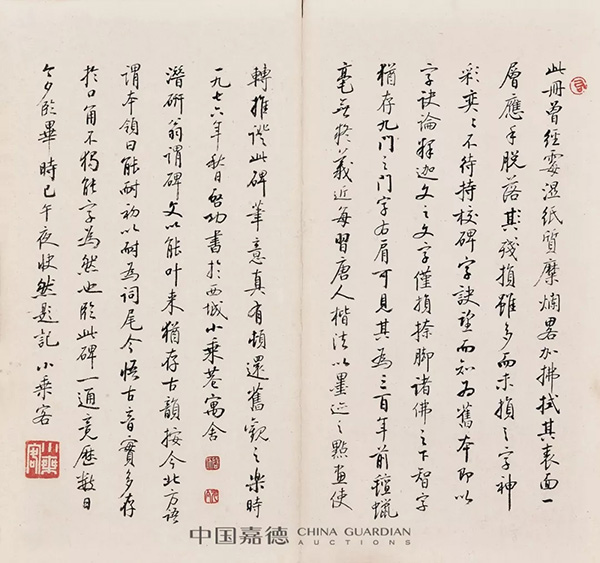 此册曾經霉濕紙質糜爛畧加拂拭其表面一
層應手脫落其殘損雖多而未損之字神
彩奕〻不待持校碑字訣望而知为舊本即以
字訣論釋迦文之文字僅損捺脚諸佛之下智字
猶存九門之門字右肩可見其為三百年前氊蠟
毫無疑義近每習唐人楷法以墨迹之點畫使
轉推證此碑筆意真有頓還舊觀之樂時
一九七六年秋日啓功書於西城小乘巷寓舍
潛研翁謂碑文以能叶来猶存古韻按今北方語
謂本領曰能耐初以耐为詞尾今悟古音實多存
於口角不獨能字為然也臨此碑一通竟歷數日
今夕臨畢時已午夜快然題記 小乘客
小乘客
中国嘉德 CHINA GUARDIAN
AUCTIONS